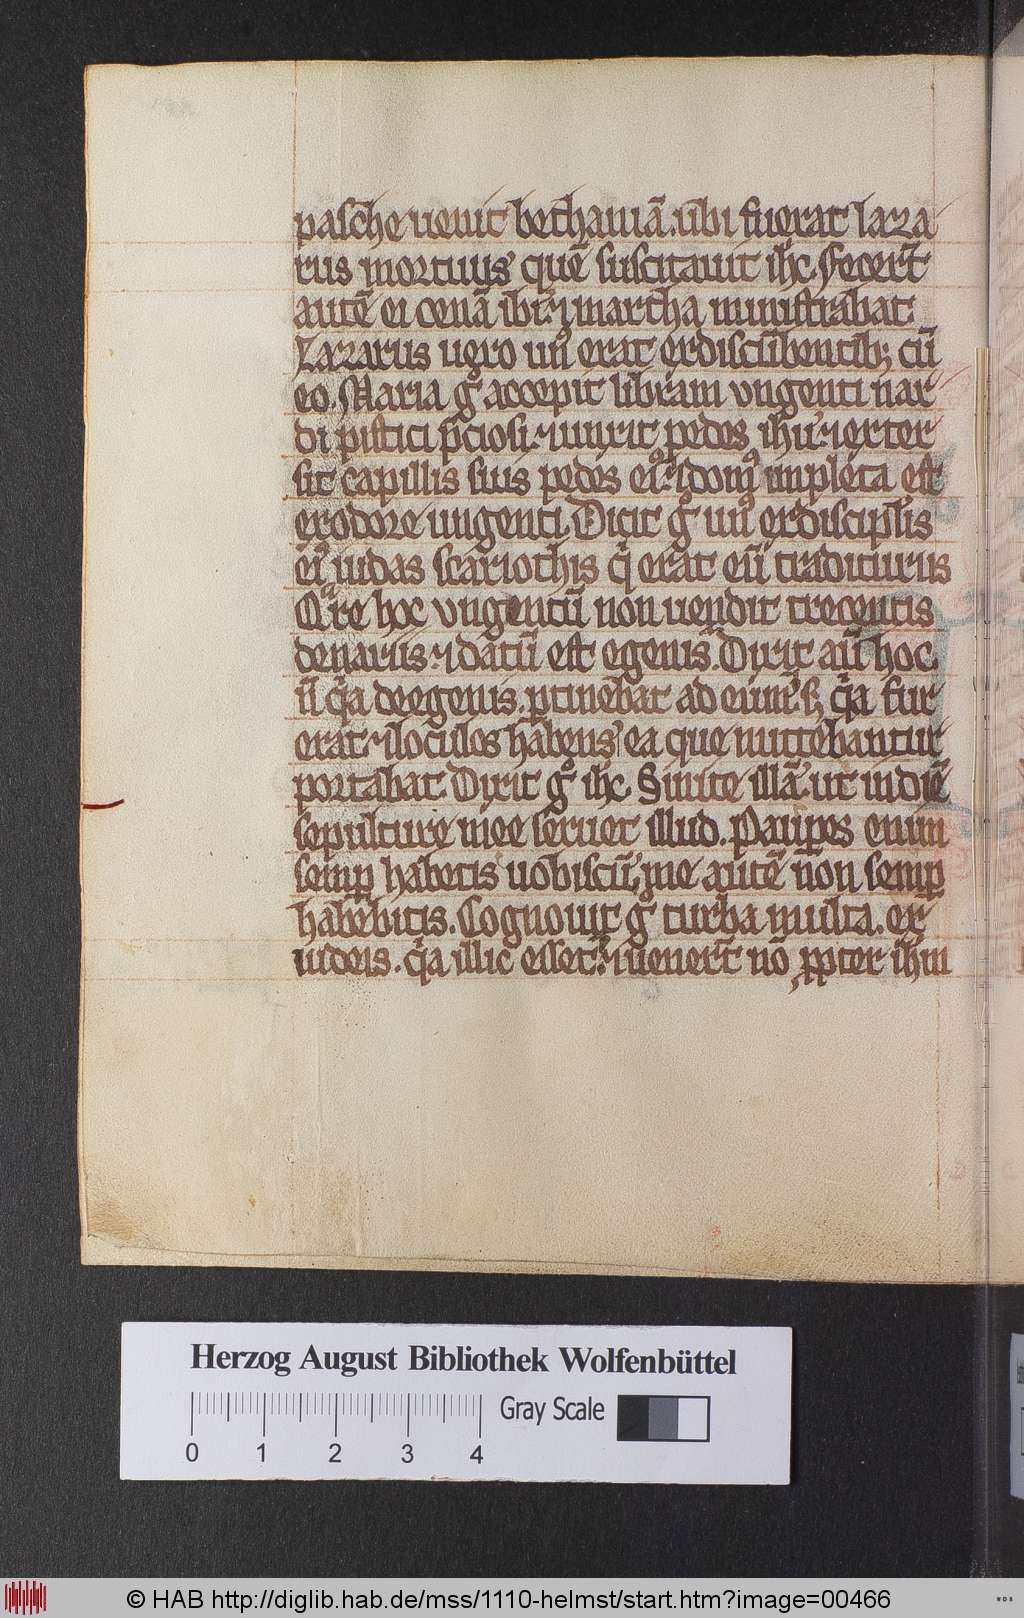 pasche uenit bethaniã. ubi fuerat laza
rus mortuus quẽ suscitauit ihc. Fecer̃t
autẽ ei cenã ibi. ⁊ martha ministrabat.
Lazarus uero unꝰ erat ex discũbentibꝫ cũ
eo. Maria gͦ accepit libram vngenti nar
di pistici p̃ciosi. ⁊ unxit pedes ihu. ⁊ exter
sit capillis suis pedes eiꝰ. ⁊ domꝰ impleta est
ex odore ungenti. Dicit gͦ unꝰ ex discipulis
eiꝰ iudas scariothis q̇ erat eũ traditurus
Qᵃre hoc vngentũ non uendit trecentis
denariis ⁊ datũ est egenis. Dixit aũ hoc.
ñ qᵃa de egenis. ꝑtinebat ad eum. sꝫ qᵃa fur
erat ⁊ loculos habens ea que mittebantur
portabat. Dixit gͦ ihc. Sinite illã. ut in diẽ
sepulture mee seruet illud. Pauꝑes enim
semꝑ habetis uobiscũ. me autẽ non semꝑ
habebitis. Cognouit gͦ turba multa. ex
iudeis. qᵃa illic esset. ⁊ uener̃t nõ ꝓpter ihm
Herzog August Bibliothek Wolfenbüttel
0 1 2 3 4
Gray Scale
© HAB http://diglib.hab.de/mss/1110-helmst/start.htm?image=00466